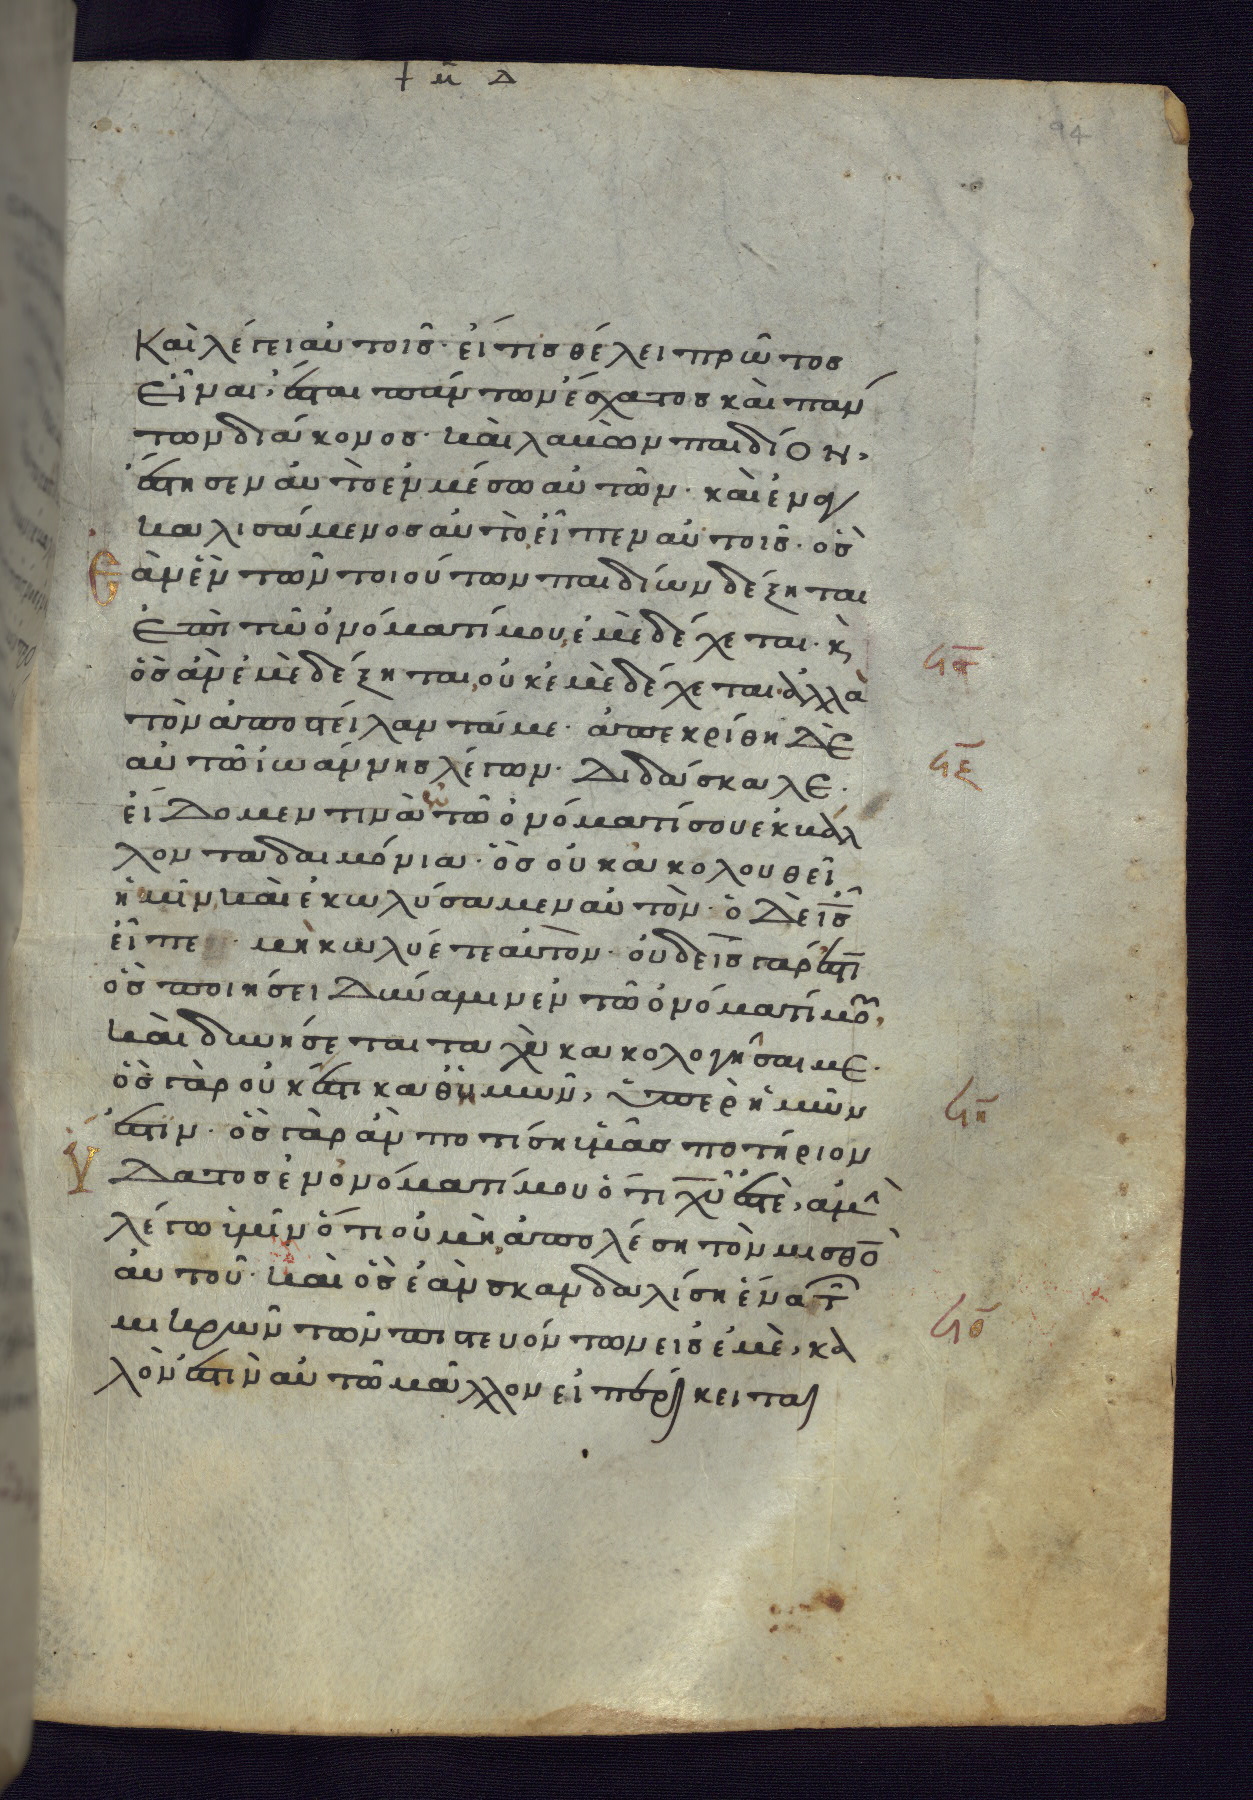 † μ̃ Δ
94
Καὶ λέγει αὐτοῖς· εἴ τις θέλει πρῶτος
εἶναι, ἔσται πάντων ἔσχατος καὶ πάν
των διάκονος· καὶ λαβὼν παιδίον,
ἔστησεν αὐτὸ ἐν μέσω αὐτῶν· καὶ ἐναγ
καλισάμενος αὐτὸ εἶπεν αὐτοῖς· ὃς
ἐὰν ἓν τῶν τοιούτων παιδίων δέξηται
ἐπὶ τῶ ὀνόματί μου, ἐμὲ δέχεται· κ̀
ὃς ἂν ἐμὲ δέξηται, οὐκ ἐμὲ δέχεται ἀλλὰ
τὸν ἀποστείλαντά με· ἀπεκρίθη δὲ
αὐτῶ ἰωάννης λέγων· Διδάσκαλε·
εἴδομεν τινὰ ἐν τῶ ὀνόματί σου ἐκβάλ
λοντα δαιμόνια· ὃς οὐκ ἀκολουθεῖ
ἡμῖν καὶ ἐκωλύσαμεν αὐτὸν· ὁ δὲ ις̅
εἶπε · μὴ κωλύετε αὐτὸν· οὐδεὶς γάρ ἐστι
ὃς ποιήσει δύναμιν ἐν τῶ ὀνόματί μου,
καὶ δυνήσεται ταχὺ κακολογῆσαι με·
ὃς γὰρ οὐκ ἔστι καθ ἡμῶν, ὑπὲρ ἡμῶν
ἐστιν· ὃς γὰρ ἂν ποτίση ὑμᾶς ποτήριον
ὕδατος ἐν ὀνόματί μου ὅτι χυ̅ ἐστὲ, ἀμὴ
λέγω ὑμῖν ὅτι οὐ μὴ ἀπολέση τὸν μισθὸ
αὐτοῦ· καὶ ὃς ἐὰν σκανδαλίση ἕνα τ
μικρῶν τῶν πιστευόντων εἰς ἐμὲ, κα
λόν ἐστιν αὐτῶ μᾶλλον εἰ περίκειται